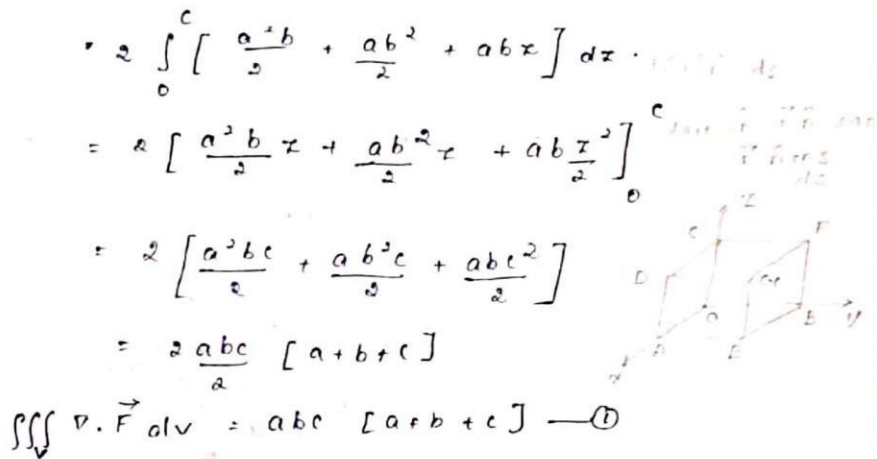 = 2 ∫₀ᶜ [ a²b/2 + ab²/2 + abz ] dz .
= 2 [ a²b/2 z + ab²/2 z + ab z²/2 ]₀ᶜ
= 2 [ a²bc/2 + ab²c/2 + abc²/2 ]
= 2 abc/2 [a+b+c]
∭ᵥ ∇.F⃗ dv = abc [a+b+c] —①
z
C F
D G
O B y
A E
x